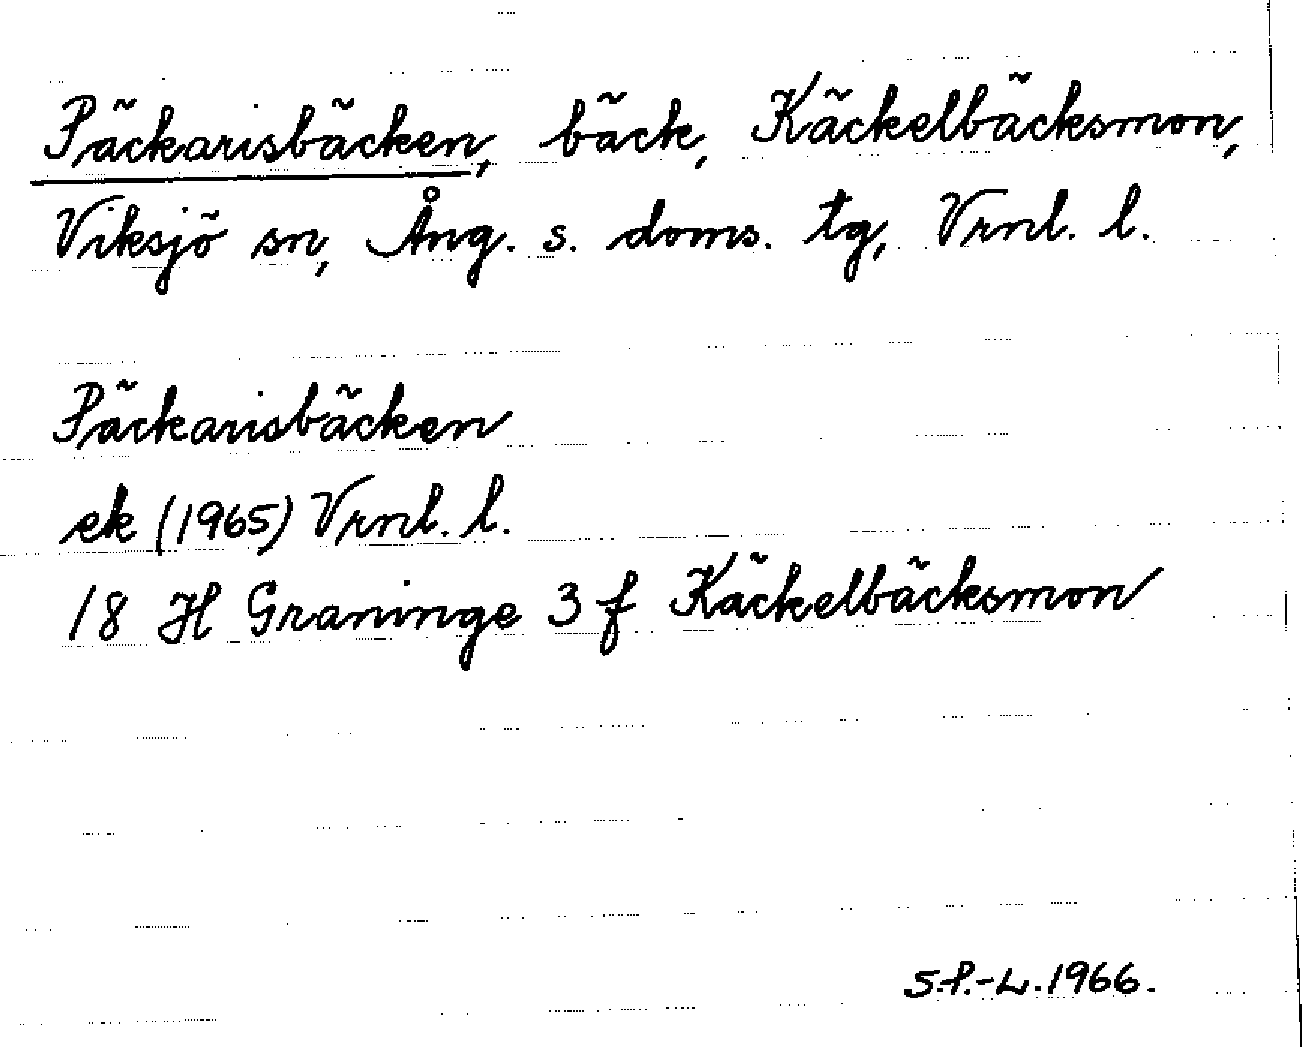 Päckarisbäcken, bäck, Käckelbäcksmon,
Viksjö sn, Ång. s. doms. tg, Vrnl. l.
Päckarisbäcken
ek (1965) Vrnl. l.
18 H Graninge 3 f Käckelbäcksmon
S.P.-L. 1966.